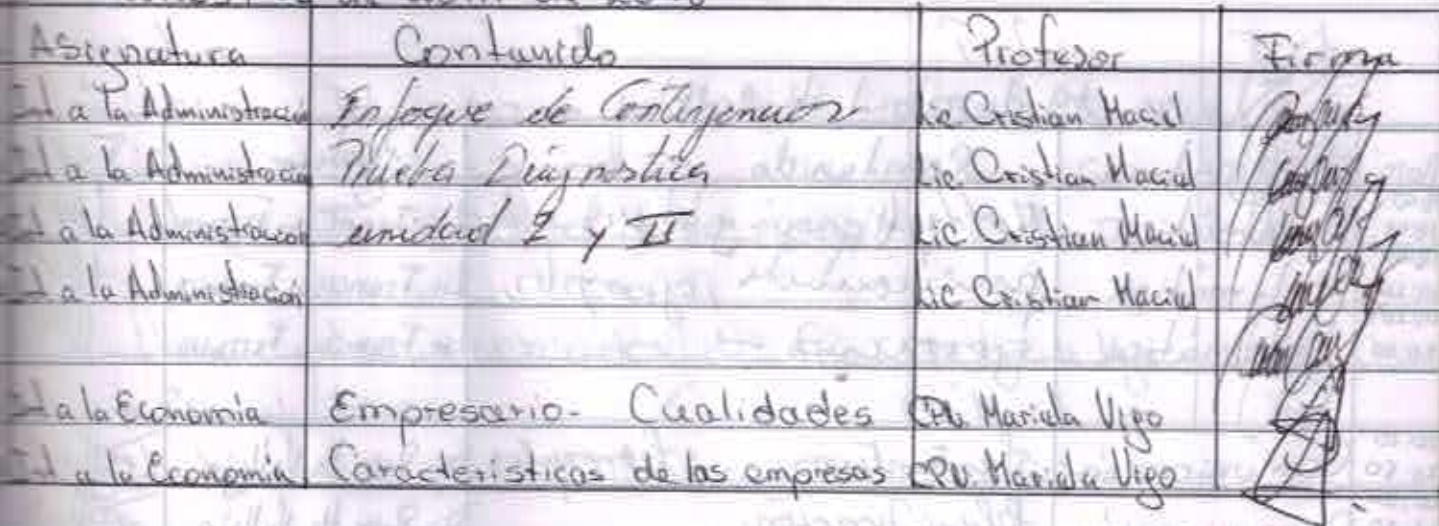 Asignatura Contenido Profesor Firma
Int. a la Administración Enfoque de Contingencias Lic Cristian Maciel
Int. a la Administración Prueba Diagnóstica Lic. Cristian Maciel
Int. a la Administración unidad I y II Lic Cristian Maciel
Int. a la Administración Lic Cristian Maciel
Int. a la Economía Empresario - Cualidades Mariela Vigo
Int. a la Economía Características de las empresas Mariela Vigo